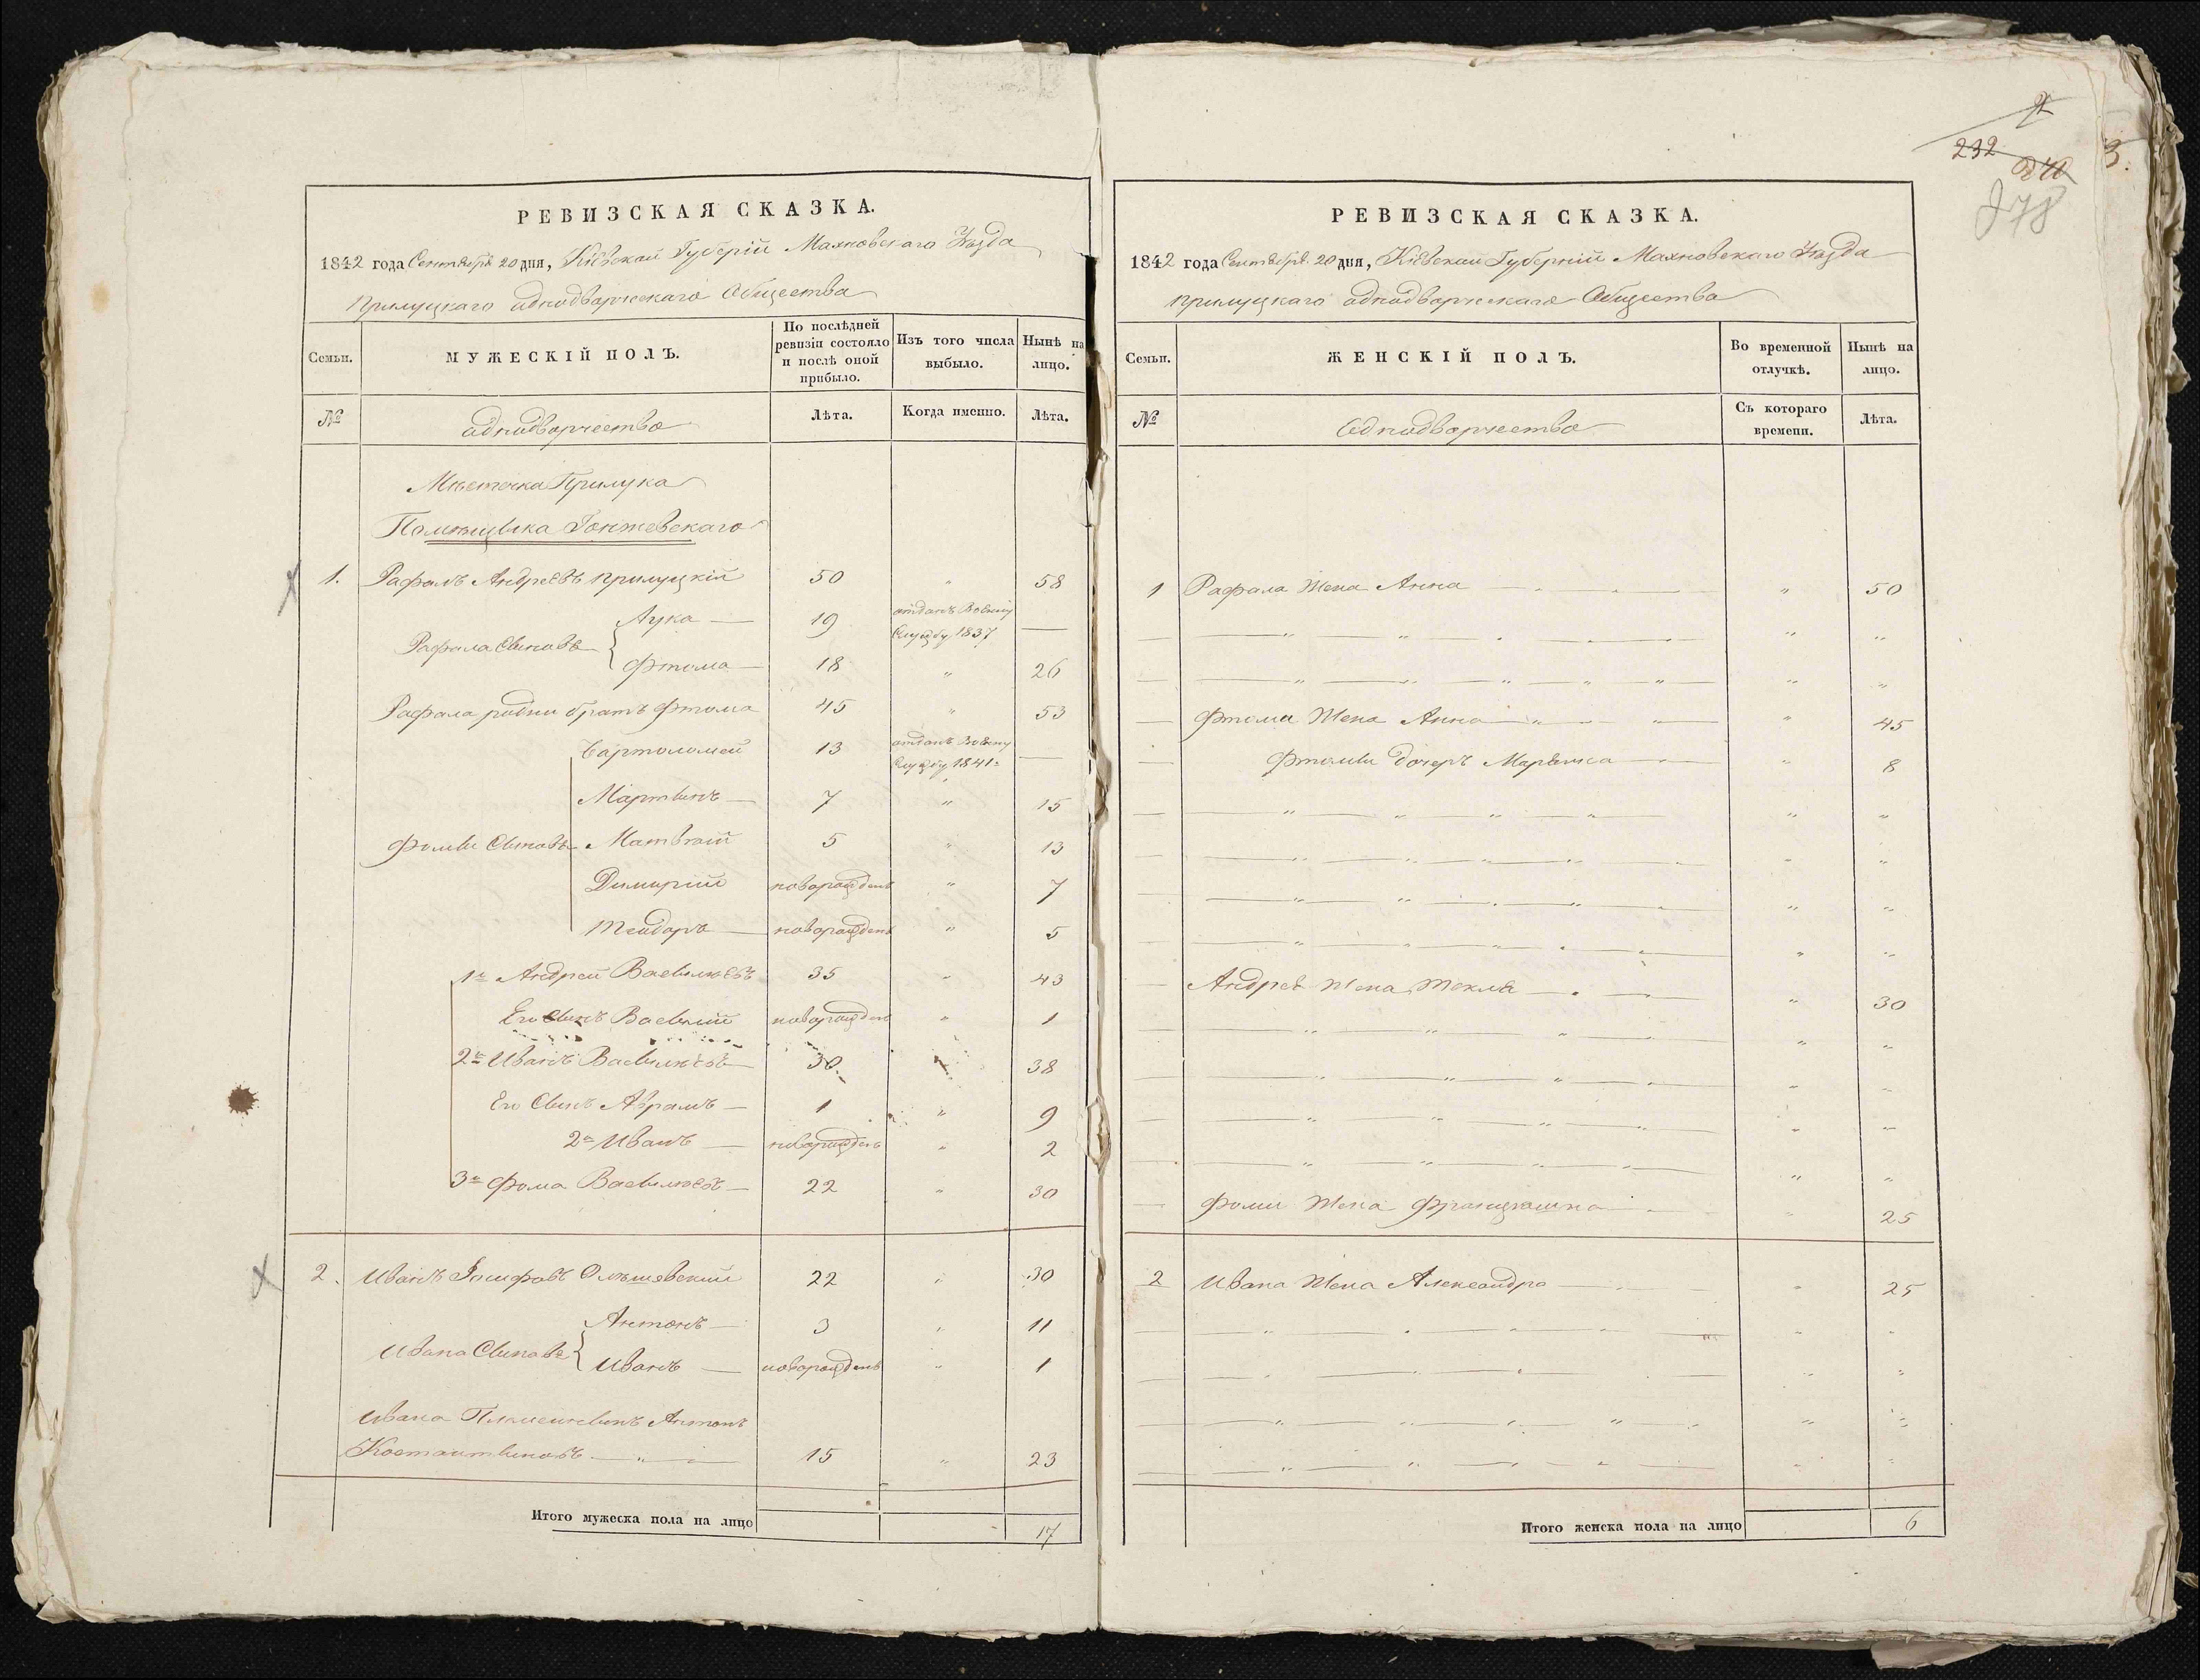 РЕВИЗСКАЯ СКАЗКА.
1842 года Сентября 20 дня, Кіевской Губерніи Махновскаго Уезда
Прилуцкаго однодворческаго Общества
Семьи.
МУЖЕСКІЙ ПОЛЪ.
По послѣдней ревизіи состояло и послѣ оной прибыло.
Изъ того числа выбыло.
Нынѣ на лицо.
№
однодворчества
Лѣта.
Когда именно.
Лѣта.
Мѣстечка Прилука
Помѣщика
1. Рафалъ Андреевъ Прилуцкій 50 " 58
Рафала Синовъ
Лука — 19 отданъ Воену Службу 1837 —
Фтома — 18 " 26
Рафала родни братъ Фтома 45 " 53
Бартоломей 13 отданъ Воену Службу 1841 —
Мартинъ — 7 " 15
Фоми Синовъ Матвѣй 5 " 13
Димирій новорожденъ " 7
Теодоръ — новорожденъ " 5
1й Андрей Васильевъ 35 " 43
Его Синъ Василий новорожденъ " 1
2й Иванъ Васильевъ 30 " 38
Его Синъ Абрамъ — 1 " 9
2й Иванъ — новорожденъ " 2
3й Фома Васильевъ — 22 " 30
2. Иванъ Ольшевский 22 " 30
Ивана Синовъ
Антонъ — 3 " 11
Иванъ — новорожденъ " 1
Ивана Племеникъ Антонъ
Костантиновъ — 15 " 23
Итого мужеска пола на лицо 17
2
232
240
3.
278
РЕВИЗСКАЯ СКАЗКА.
1842 года Сентября 20 дня, Кіевской Губерніи Махновскаго Уезда
Прилуцкаго однодворческаго Общества
Семьи.
ЖЕНСКІЙ ПОЛЪ.
Во временной отлучкѣ.
Нынѣ на лицо.
№
Однодворчества
Съ котораго времени.
Лѣта.
1 Рафала Жена Анна " 50
Фтоми Жена Анна " 45
Фтоми дочеръ Марьяна " 8
Андрея Жена Текля " 30
Фоми Жена Францишка " 25
2 Ивана Жена Александра " 25
Итого женска пола на лицо 6